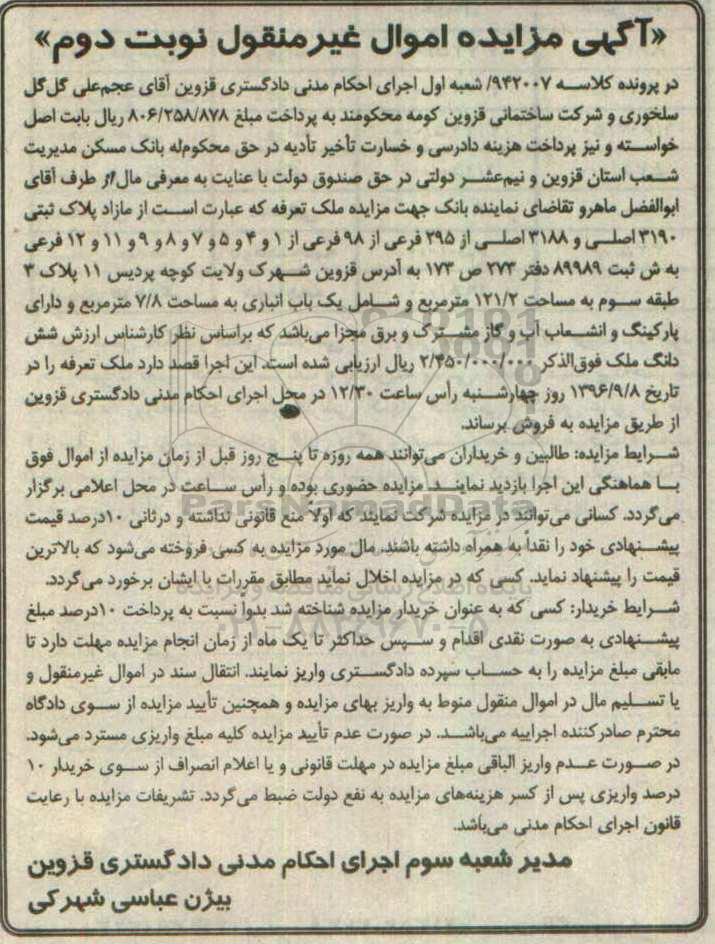 «آگهی مزایده اموال غیرمنقول نوبت دوم»
در پرونده کلاسه ۹۴۲۰۰۷/ شعبه اول اجرای احکام مدنی دادگستری قزوین آقای عجمعلی گل‌گل
سلخوری و شرکت ساختمانی قزوین کومه محکومند به پرداخت مبلغ ۸۰۶/۲۵۸/۸۷۸ ریال بابت اصل
خواسته و نیز پرداخت هزینه دادرسی و خسارت تأخیر تأدیه در حق محکوم‌له بانک مسکن مدیریت
شعب استان قزوین و نیم‌عشر دولتی در حق صندوق دولت با عنایت به معرفی مال از طرف آقای
ابوالفضل ماهرو تقاضای نماینده بانک جهت مزایده ملک تعرفه که عبارت است از مازاد پلاک ثبتی
۳۱۹۰ اصلی و ۳۱۸۸ اصلی از ۲۹۵ فرعی از ۹۸ فرعی از ۱ و ۴ و ۵ و ۷ و ۸ و ۹ و ۱۱ و ۱۲ فرعی
به ش ثبت ۸۹۹۸۹ دفتر ۲۷۳ ص ۱۷۳ به آدرس قزوین شهرک ولایت کوچه پردیس ۱۱ پلاک ۳
طبقه سوم به مساحت ۱۲۱/۲ مترمربع و شامل یک باب انباری به مساحت ۷/۸ مترمربع و دارای
پارکینگ و انشعاب آب و گاز مشترک و برق مجزا می‌باشد که براساس نظر کارشناس ارزش شش
دانگ ملک فوق‌الذکر ۲/۴۵۰/۰۰۰/۰۰۰ ریال ارزیابی شده است. این اجرا قصد دارد ملک تعرفه را در
تاریخ ۱۳۹۶/۹/۸ روز چهارشنبه رأس ساعت ۱۲/۳۰ در محل اجرای احکام مدنی دادگستری قزوین
از طریق مزایده به فروش برساند.
شرایط مزایده: طالبین و خریداران می‌توانند همه روزه تا پنج روز قبل از زمان مزایده از اموال فوق
با هماهنگی این اجرا بازدید نمایند. مزایده حضوری بوده و رأس ساعت در محل اعلامی برگزار
می‌گردد. کسانی می‌توانند در مزایده شرکت نمایند که اولا منع قانونی نداشته و درثانی ۱۰درصد قیمت
پیشنهادی خود را نقداً به همراه داشته باشند. مال مورد مزایده به کسی فروخته می‌شود که بالاترین
قیمت را پیشنهاد نماید. کسی که در مزایده اخلال نماید مطابق مقررات با ایشان برخورد می‌گردد.
شرایط خریدار: کسی که به عنوان خریدار مزایده شناخته شد بدواً نسبت به پرداخت ۱۰درصد مبلغ
پیشنهادی به صورت نقدی اقدام و سپس حداکثر تا یک ماه از زمان انجام مزایده مهلت دارد تا
مابقی مبلغ مزایده را به حساب سپرده دادگستری واریز نمایند. انتقال سند در اموال غیرمنقول و
یا تسلیم مال در اموال منقول منوط به واریز بهای مزایده و همچنین تأیید مزایده از سوی دادگاه
محترم صادرکننده اجراییه می‌باشد. در صورت عدم تأیید مزایده کلیه مبلغ واریزی مسترد می‌شود.
در صورت عدم واریز الباقی مبلغ مزایده در مهلت قانونی و یا اعلام انصراف از سوی خریدار ۱۰
درصد واریزی پس از کسر هزینه‌های مزایده به نفع دولت ضبط می‌گردد. تشریفات مزایده با رعایت
قانون اجرای احکام مدنی می‌باشد.
مدیر شعبه سوم اجرای احکام مدنی دادگستری قزوین
بیژن عباسی شهرکی
ParsNamadData